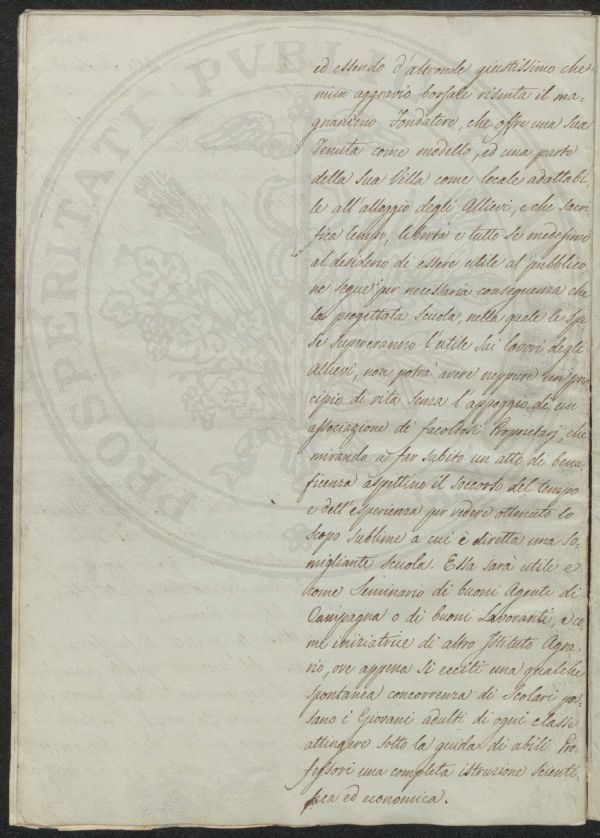 ed essendo d'altronde giustissimo che
niun aggravio borsale risenta il ma=
gnanimo Fondatore, che offre una sua
Tenuta come modello, ed una parte
della sua Villa come locale adattabi=
le all'alloggio degli Allievi, e che sacri=
fica tempo, libertà e tutto se medesimo
al desiderio di essere utile al pubblico,
ne segue per necessaria conseguenza che
la progettata scuola, nella quale le spe=
se supereranno l'utile sui lavori degli
Allievi, non potrà avere neppure un prin=
cipio di vita senza l'appoggio di un
associazione di facoltosi Proprietarj che
mirando a far subito un atto di bene=
ficenza aspettino il soccorso del tempo
e dell'esperienza per vedere ottenuto lo
scopo sublime a cui è diretta una so=
migliante scuola. Essa sarà utile e
come Seminario di buoni Agenti di
Campagna o di buoni Lavoranti, e co=
me iniziatrice di altro Istituto Agra=
rio, ove appena si ecciti una qualche
spontanea concorrenza di Scolari pos=
sano i Giovani adulti di ogni classe
attingere sotto la guida di abili Pro=
fessori una completa istruzione scienti=
fica ed economica.
PROSPERITATI PVBLI